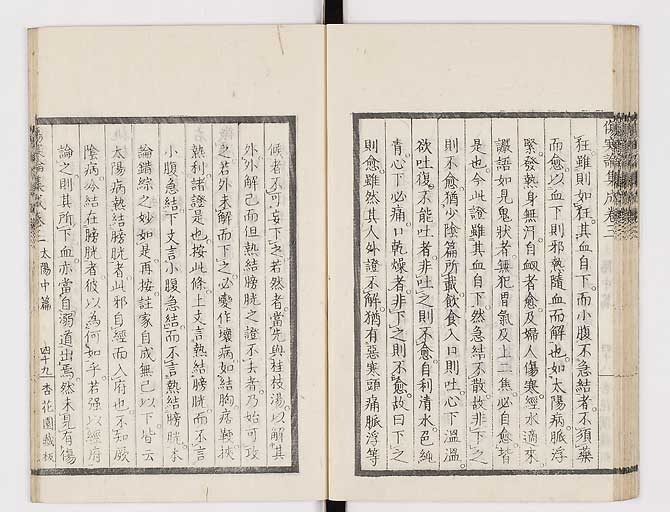 傷寒論集成卷三
狂雖則如狂其血自下而小腹不急結者不須藥
而愈以血下則邪熱隨血而解也如太陽病脈浮
緊發熱身無汗自衂者愈及婦人傷寒經水適來
讝語如見鬼狀者無犯胃氣及上二焦必自愈皆
是也今此證雖其血自下然急結不散故非下之
則不愈猶少陰篇所載飲食入口則吐心下溫溫
欲吐復不能吐者非吐之則不愈自利清水色純
青心下必痛口乾燥者非下之則不愈故曰下之
則愈雖然其人外證不解猶有惡寒頭痛脈浮等
候者不可妄下之若然者當先與桂枝湯以解其
外外解已而但熱結膀胱之證不去者乃始可攻
之若外未解而下之必變作壞病如結胸痞鞕挾
熱利諸證是也按此條上文言熱結膀胱而不言
小腹急結下文言小腹急結而不言熱結膀胱本
論錯綜之妙如是再按註家自成無己以下皆云
太陽病熱結膀胱者此邪自經而入府也不知厥
陰病今結在膀胱者彼以為何如乎若強以經府
論之則其所下血亦當自溺道出焉然未見有傷
太陽中篇
四十九
杏花園藏板